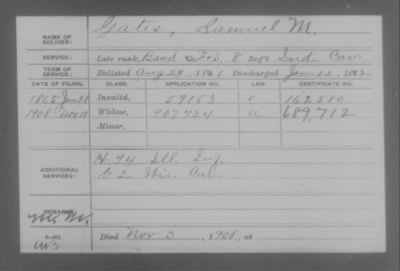 Gates, Samuel M.
NAME OF SOLDIER:
SERVICE: Late rank, Band & F&S, 8 Reg't Ind. Cav.
TERM OF SERVICE: Enlisted Aug 29, 1861 Discharged Jan 13, 1862
DATE OF FILING. CLASS. APPLICATION NO. LAW. CERTIFICATE NO.
1865 Jan Invalid, 59153 162,580
1908 Nov Widow, 907734 a 689,712
Minor,
ADDITIONAL SERVICES:
H 94 Ill. Inf.
G 2 Wis. Cav.
REMARKS:
Died Nov 3, 1908, at